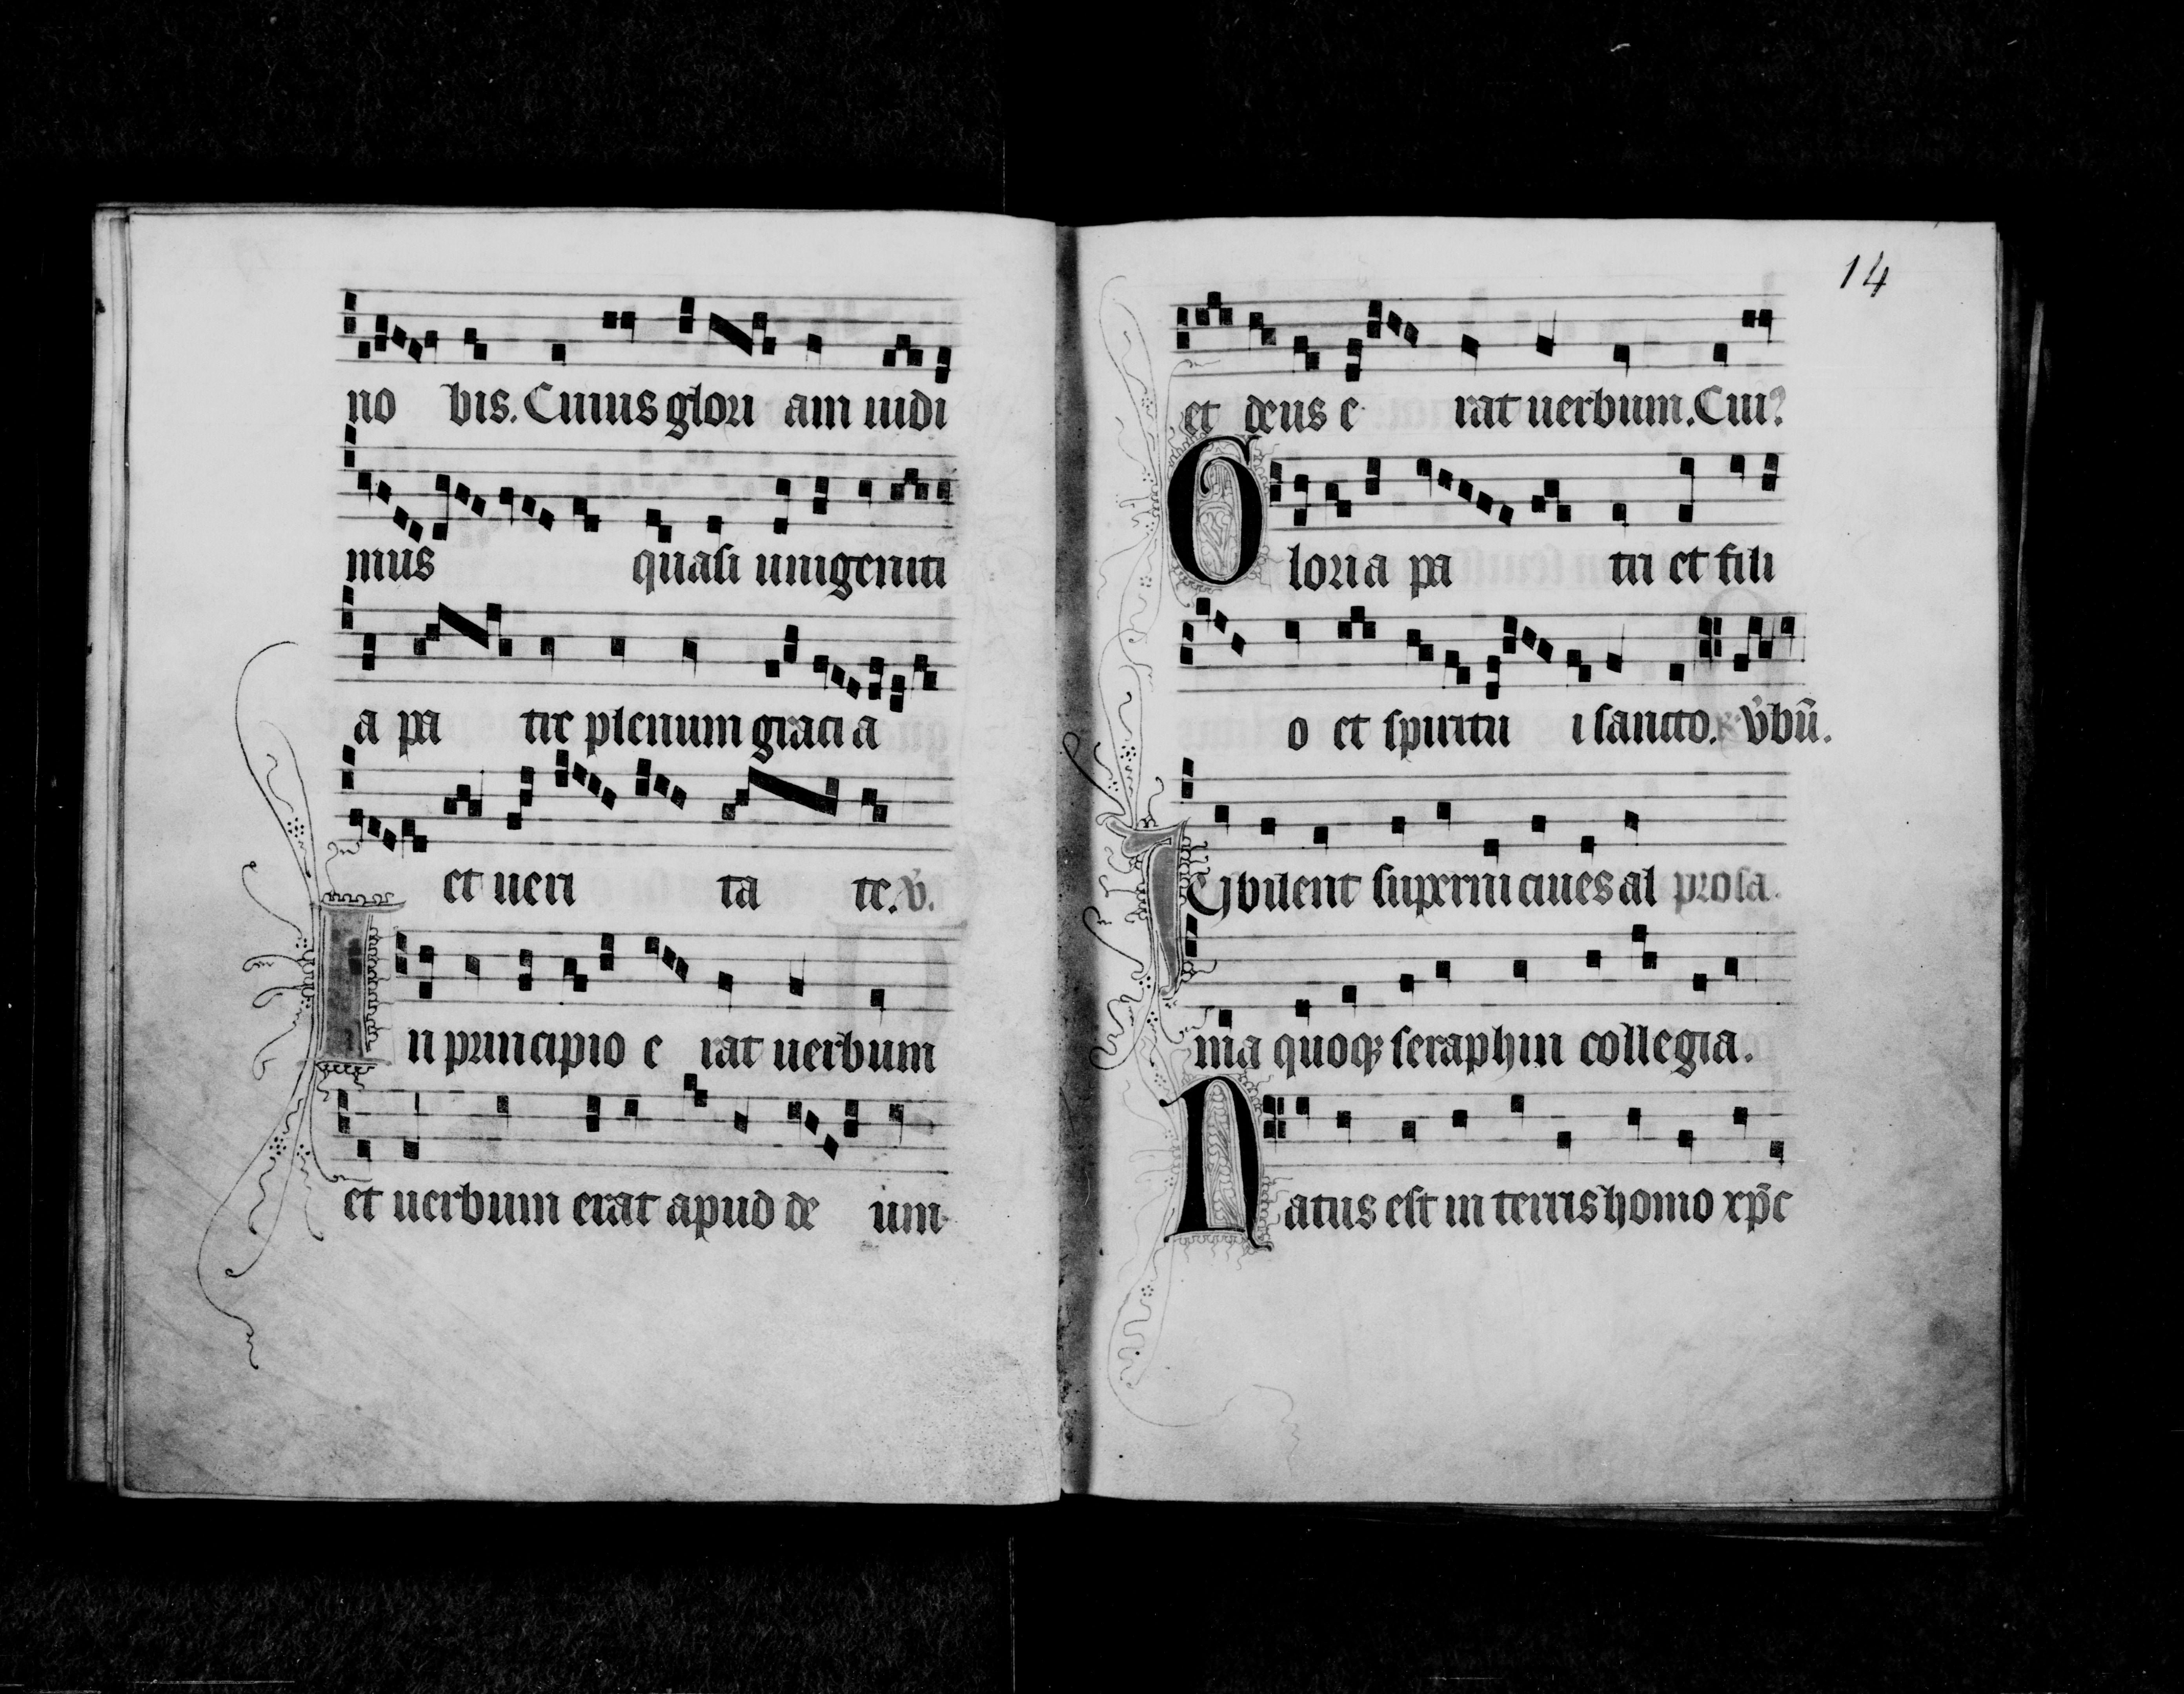 no bis. Cuius glori am uidi
mus quasi unigeniti
a pa tre plenum graci a
et ueri ta te. v̇.
In principio e rat uerbum
et uerbum erat apud de um
14
et deus e rat uerbum. Cuiꝰ
Gloria pa tri et fili
o et spiritu i sancto. v̇bū.
Iubilent superni ciues al prosa.
ma quoqꝫ seraphin collegia.
Natus est in terris homo xp̄c